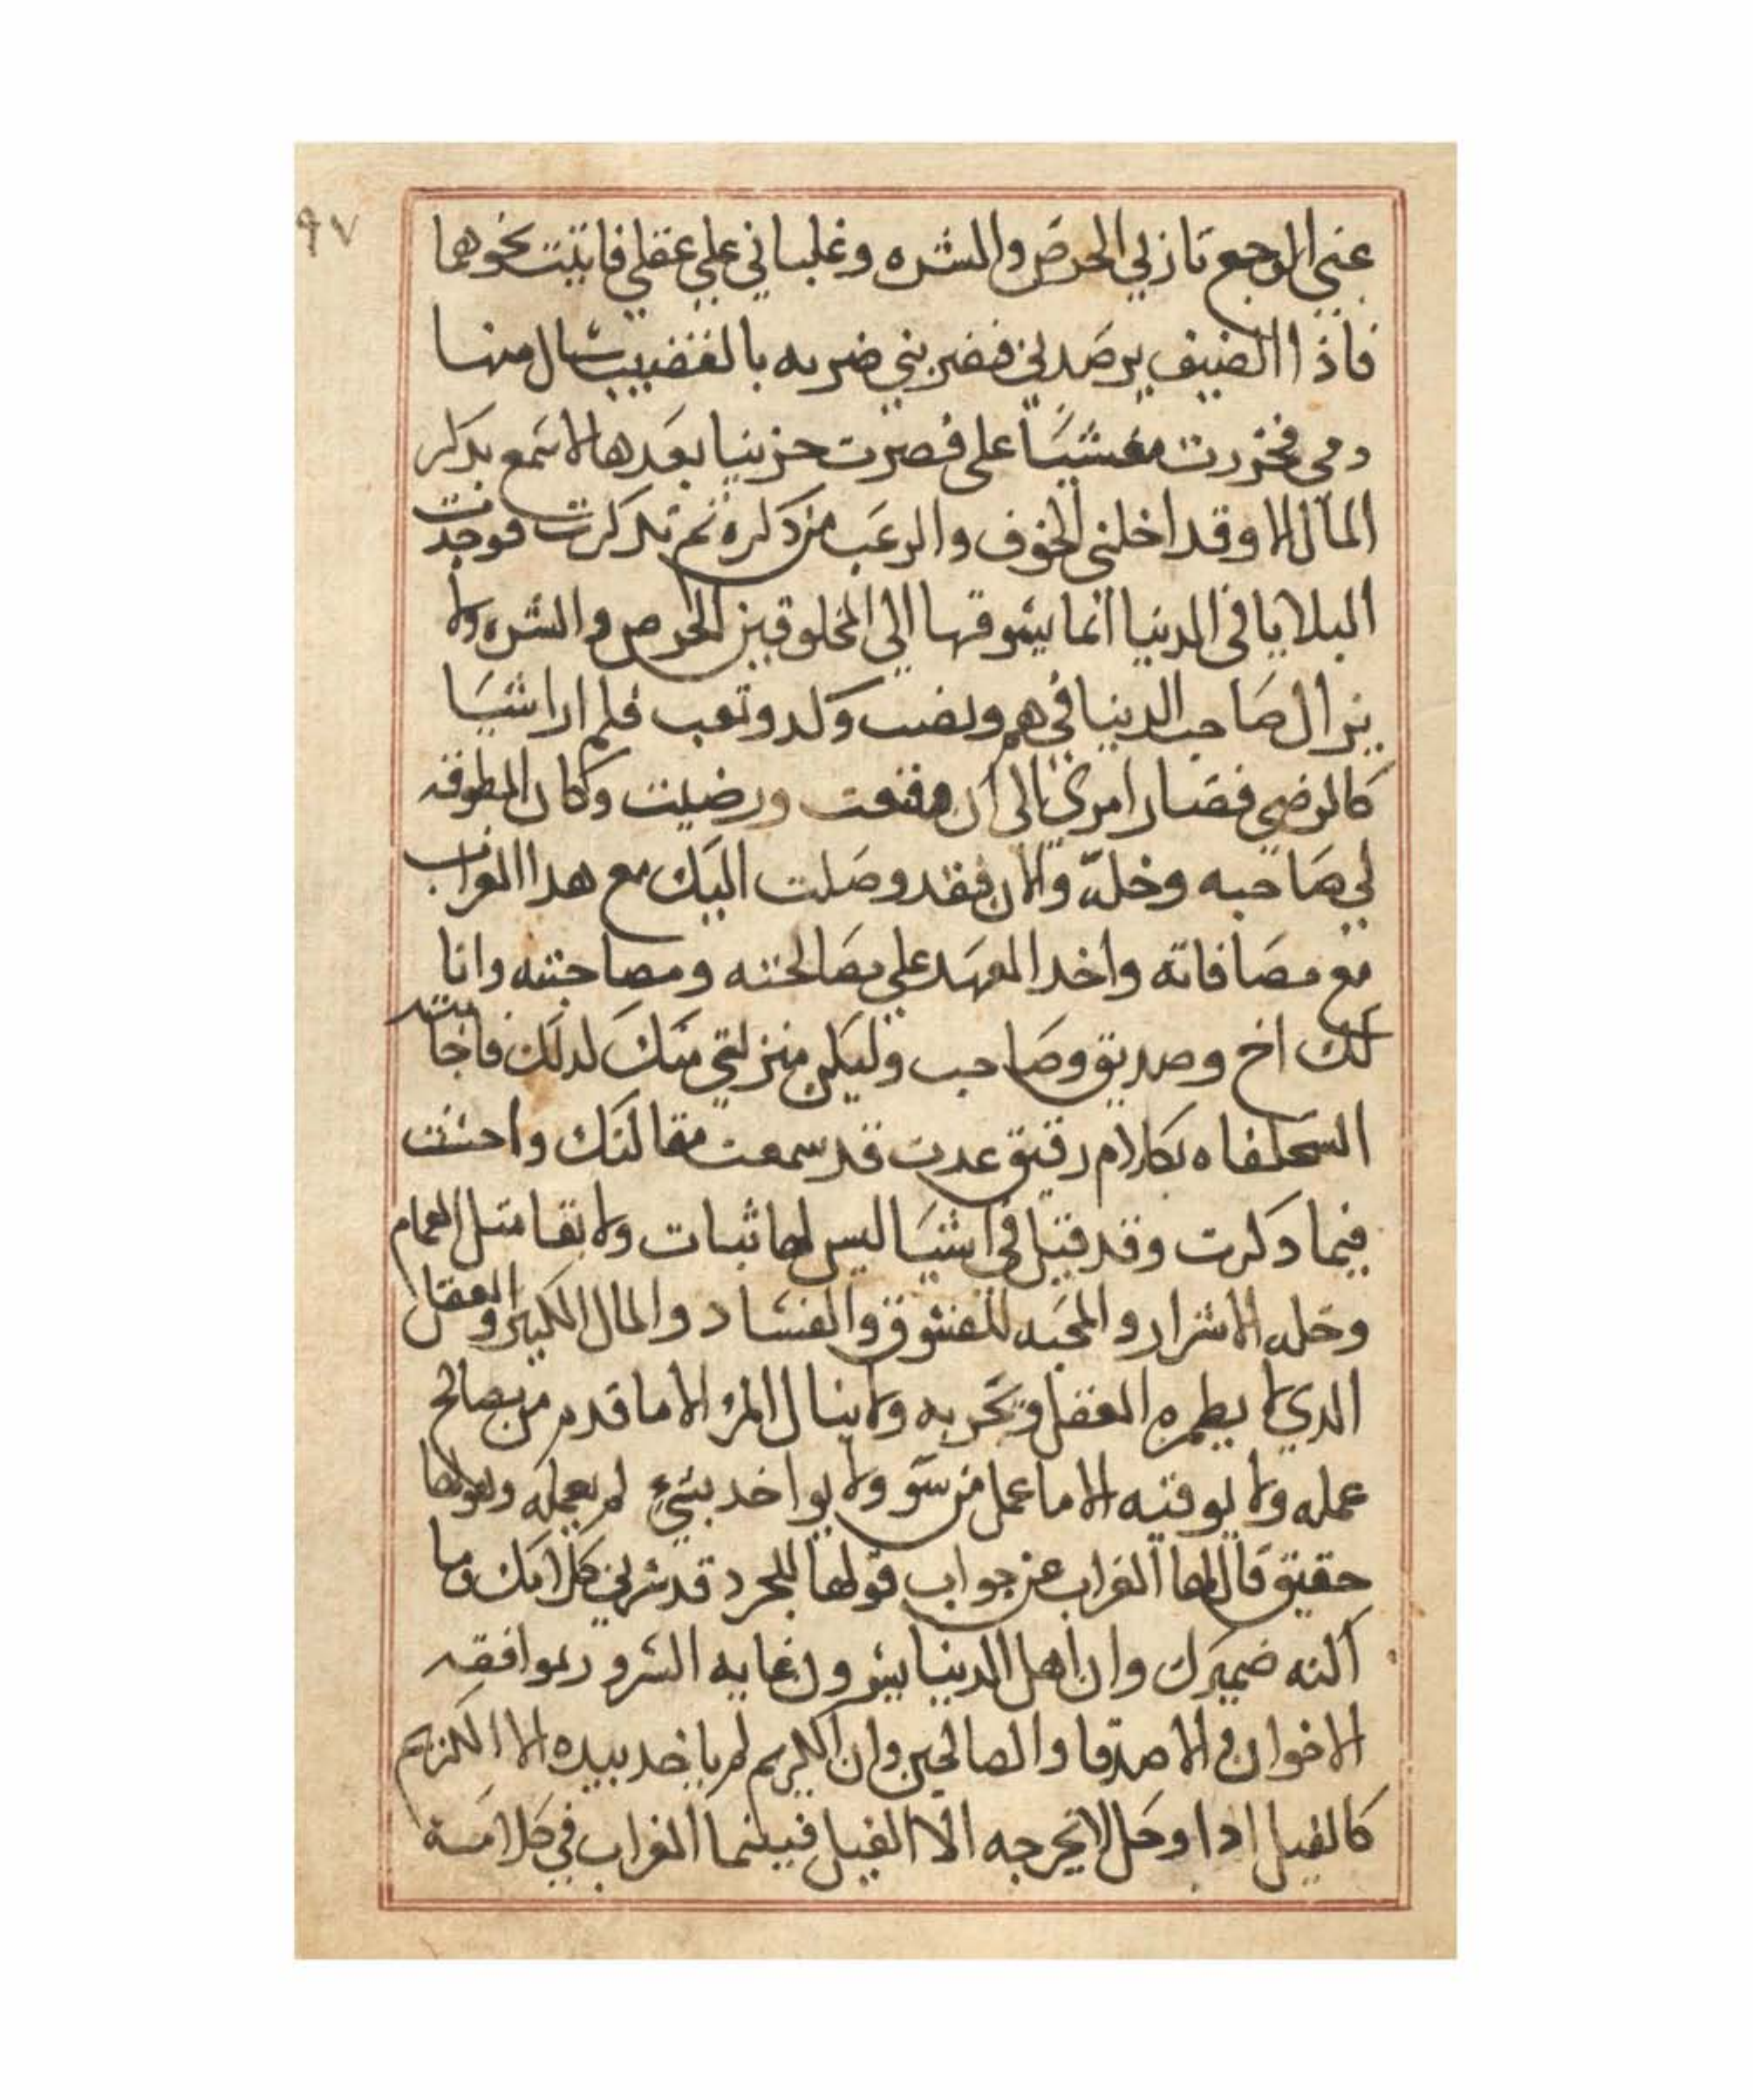 ٩٧
عني الوجع تار لي الحرص والشره وغلباني علي عقلي فاتيت نحوهما
فاذا الضيف يرصدني فضربني ضربه بالقضيب سال منها
دمي فخررت مغشيا على فصرت حزينا بعدها لا اسمع بدكر
المال الا وقد اخلني الخوف والرعب من دكره ثم تدكرت فوجدت
البلايا في الدنيا انما يسوقها الي المخلوقين الحرص والشره ولا
يزال صاحب الدنيا في هم ونصب وكد وتعب فلم ارا شيا
كالرضي فصار امري الى ان قنعت ورضيت وكان المطوقه
لي صاحبه وخله والان فقد وصلت اليك مع هدا الغراب
مع مصافاته واخد العهد علي مصالحته ومصاحبته وانا
لك اخ وصديق وصاحب وليكن منزلتي منك لدلك فاجابته
السحلفاه بكلام رقيق عدت قد سمعت مقالتك واحسنت
فيما دكرت وقد قيل في اشيا ليس لها ثبات ولا بقا مثل الغمام
وخله الاشرار والمحبه للفسوق والفساد والمال الكثير والعقل
الدي لا يطمره الفضل وتجربه ولا ينال المرؤ الا ما قدم من صالح
عمله ولا يوقنه الا ما عمل من سو ولا يواخد بشيء لم يعمله وهو لها
حقيق قال لها الغراب عن جواب قولها للجرد قد سرني كلامك وما
اكنه ضميرك وان اهل الدنيا يسرون غايه السرور بموافقه
الاخوان والاصدقا والصالحين وان الكريم لم ياخد بيده الا الكريم
كالفيل ادا وحل لا يخرجه الا الفيل فبينما الغراب في كلامه